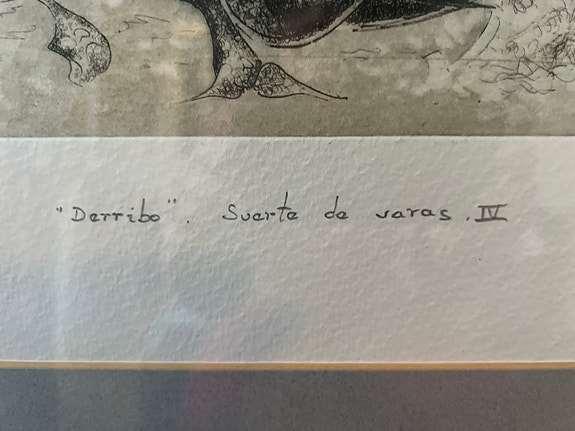 "Derribo". Suerte de varas. IV